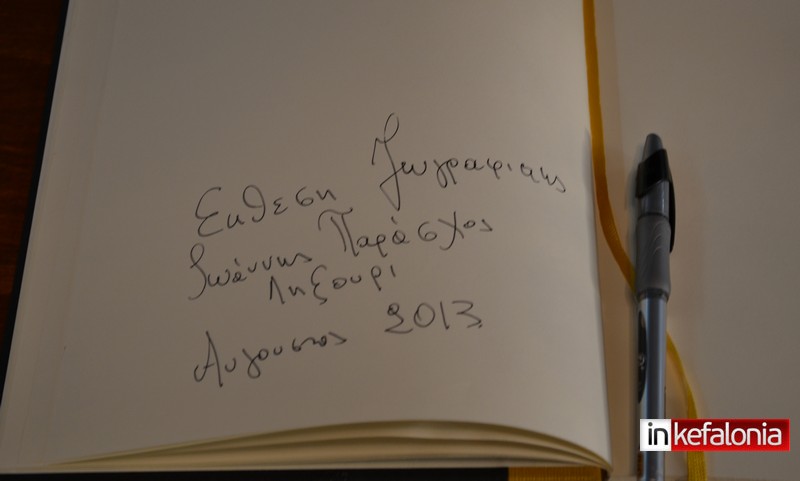 Εκθεση Ζωγραφικης
Ιωάννης Παράσχος
Ληξουρι
Αυγουστος 2013
inkefalonia